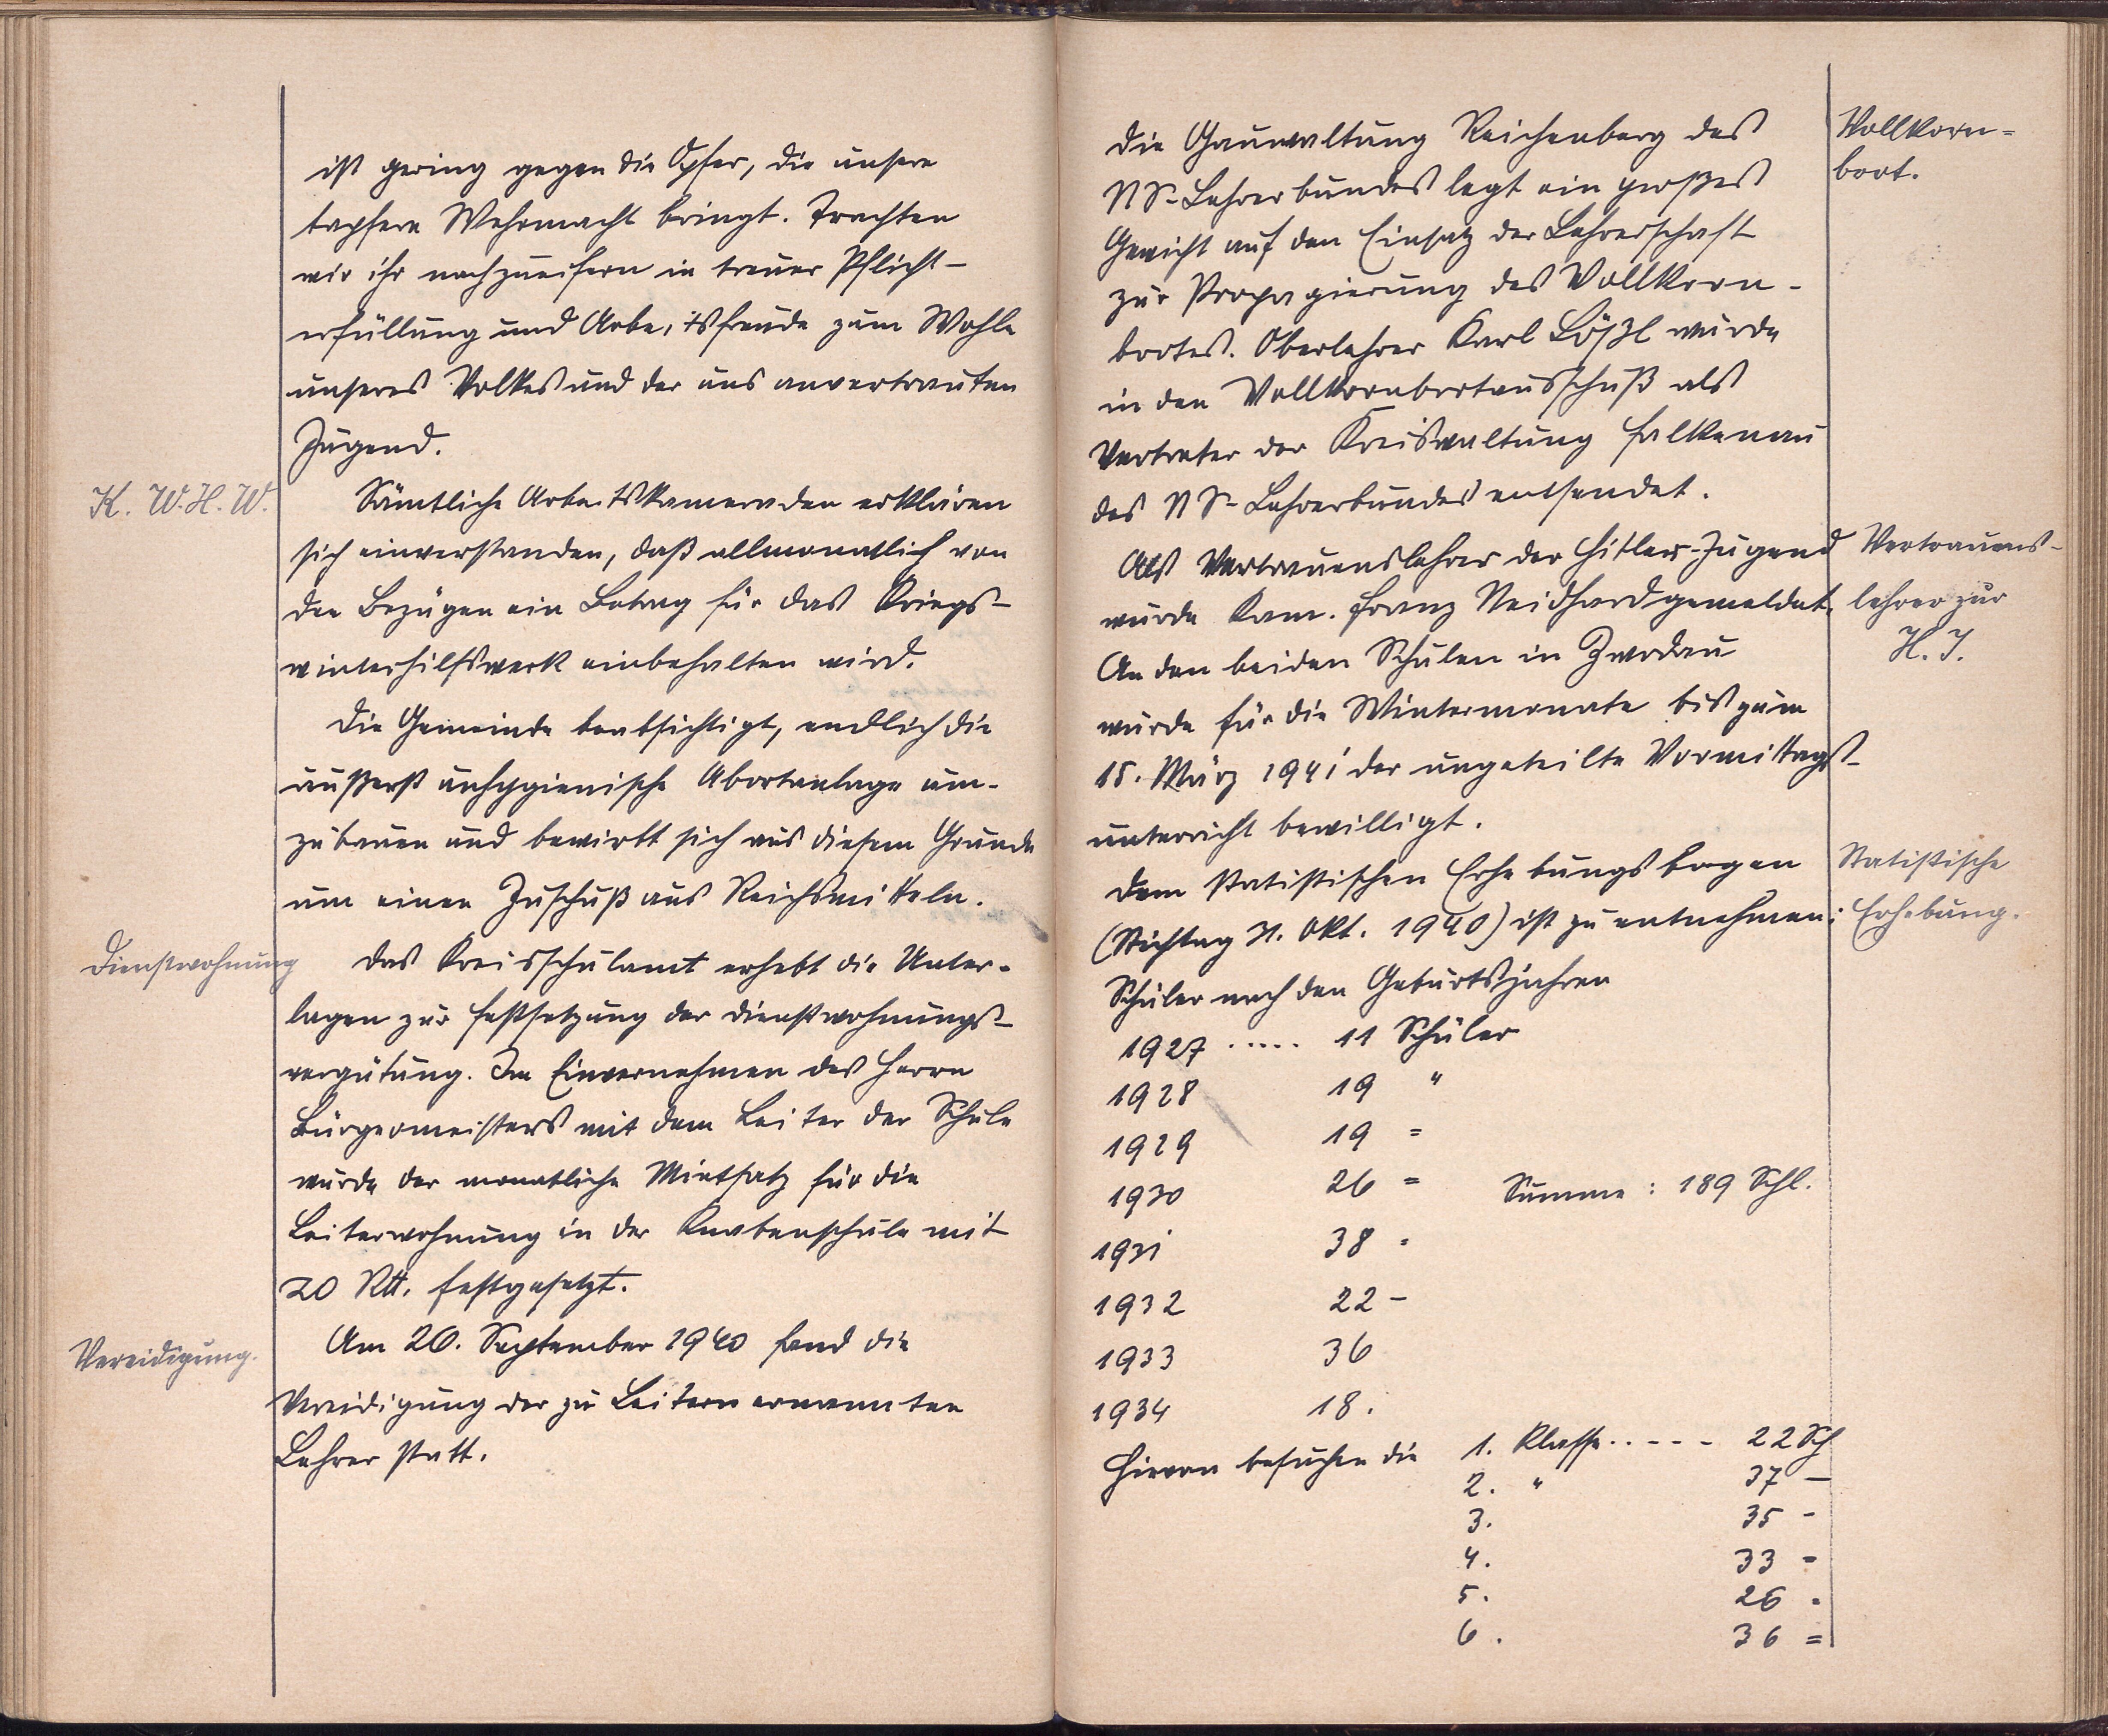 ist gering gegen die Opfer, die unsere
tapfere Wehrmacht bringt. Trachten
wir ihr nachzueifern in treuer Pflicht-
erfüllung und Arbeitsfreude zum Wohle
unseres Volkes und der uns anvertrauten
Jugend.
K. W. H. W.
Sämtliche Arbeitskameraden erklären
sich einverstanden, daß allmonatlich von
den Bezügen ein Betrag für das Kriegs-
winterhilfswerk einbehalten wird.
Die Gemeinde beabsichtigt, endlich die
äußerst unhygienische Abortanlage um-
zubauen und bewirbt sich aus diesem Grunde
um einen Zuschuß aus Reichsmitteln.
Dienstwohnung
Das Kreisschulamt erhebt die Unter-
lagen zur Festsetzung der Dienstwohnungs-
vergütung. Im Einvernehmen des Herrn
Bürgermeisters mit dem Leiter der Schule
wurde der monatliche Mietsatz für die
Leiterwohnung in der Knabenschule mit
20 RM. festgesetzt.
Vereidigung.
Am 26. September 1940 fand die
Vereidigung der zu Leitern ernannten
Lehrer statt.
Die Gauwaltung Reichenberg des
NS-Lehrerbundes legt ein großes
Gewicht auf den Einsatz der Lehrerschaft
zur Propagierung des Vollkorn-
brotes. Oberlehrer Karl Lößl wurde
in den Vollkornbrotausschuß als
Vertreter der Kreiswaltung Falkenau
des NS-Lehrerbundes entsendet.
Vollkorn=
brot.
Als Vertrauenslehrer der Hitler-Jugend
wurde Kam. Franz Neidhard gemeldet.
Vertrauens-
lehrer zur
H. J.
An den beiden Schulen in Zwodau
wurde für die Wintermonate bis zum
15. März 1941 der ungeteilte Vormittags-
unterricht bewilligt.
Dem statistischen Erhebungsbogen
(Stichtag 31. Okt. 1940) ist zu entnehmen:
Statistische
Erhebung.
Schüler nach den Geburtsjahren
1927 ..... 11 Schüler
1928 19 "
1929 19 =
1930 26 = Summe: 189 Schl.
1931 38 -
1932 22 -
1933 36
1934 18.
Hievon besuchen die 1. Klasse ..--- 22 Sch
2. " 37 -
3. 35 -
4. 33 =
5. 26 -
6. 36 =